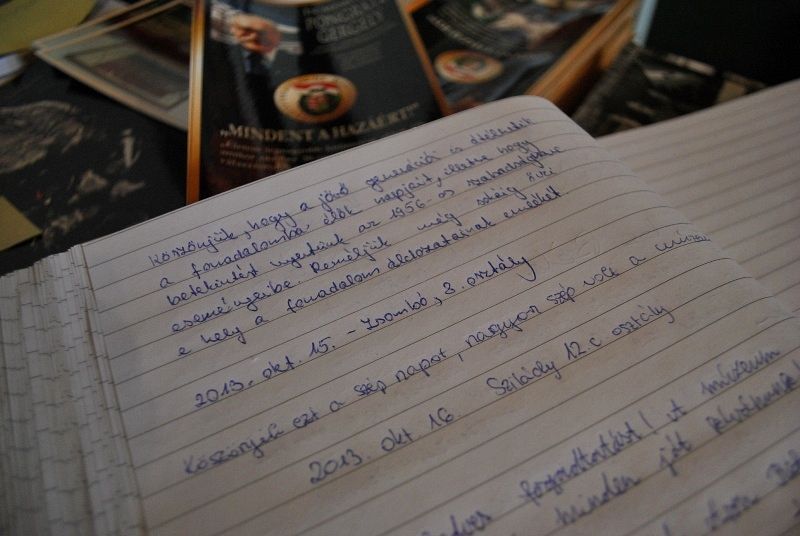 PONGRÁTZ
GERGELY
„MINDENT A HAZÁÉRT!”
Köszönjük, hogy a jövő generációi is átélhetik
a forradalomba élők napjait, illetve hogy
betekintést nyertünk az 1956-os szabadságharc
eseményeibe. Reméljük még sokáig őrzi
e hely a forradalom áldozatainak emlékét
2013. okt. 15. - Zsombó, 8. osztály
Köszönjük ezt a szép napot, nagyon szép volt a
2013. okt 16. Szilády 12.c osztály
fogadtatást! A múzeum
minden jót kívánunk!